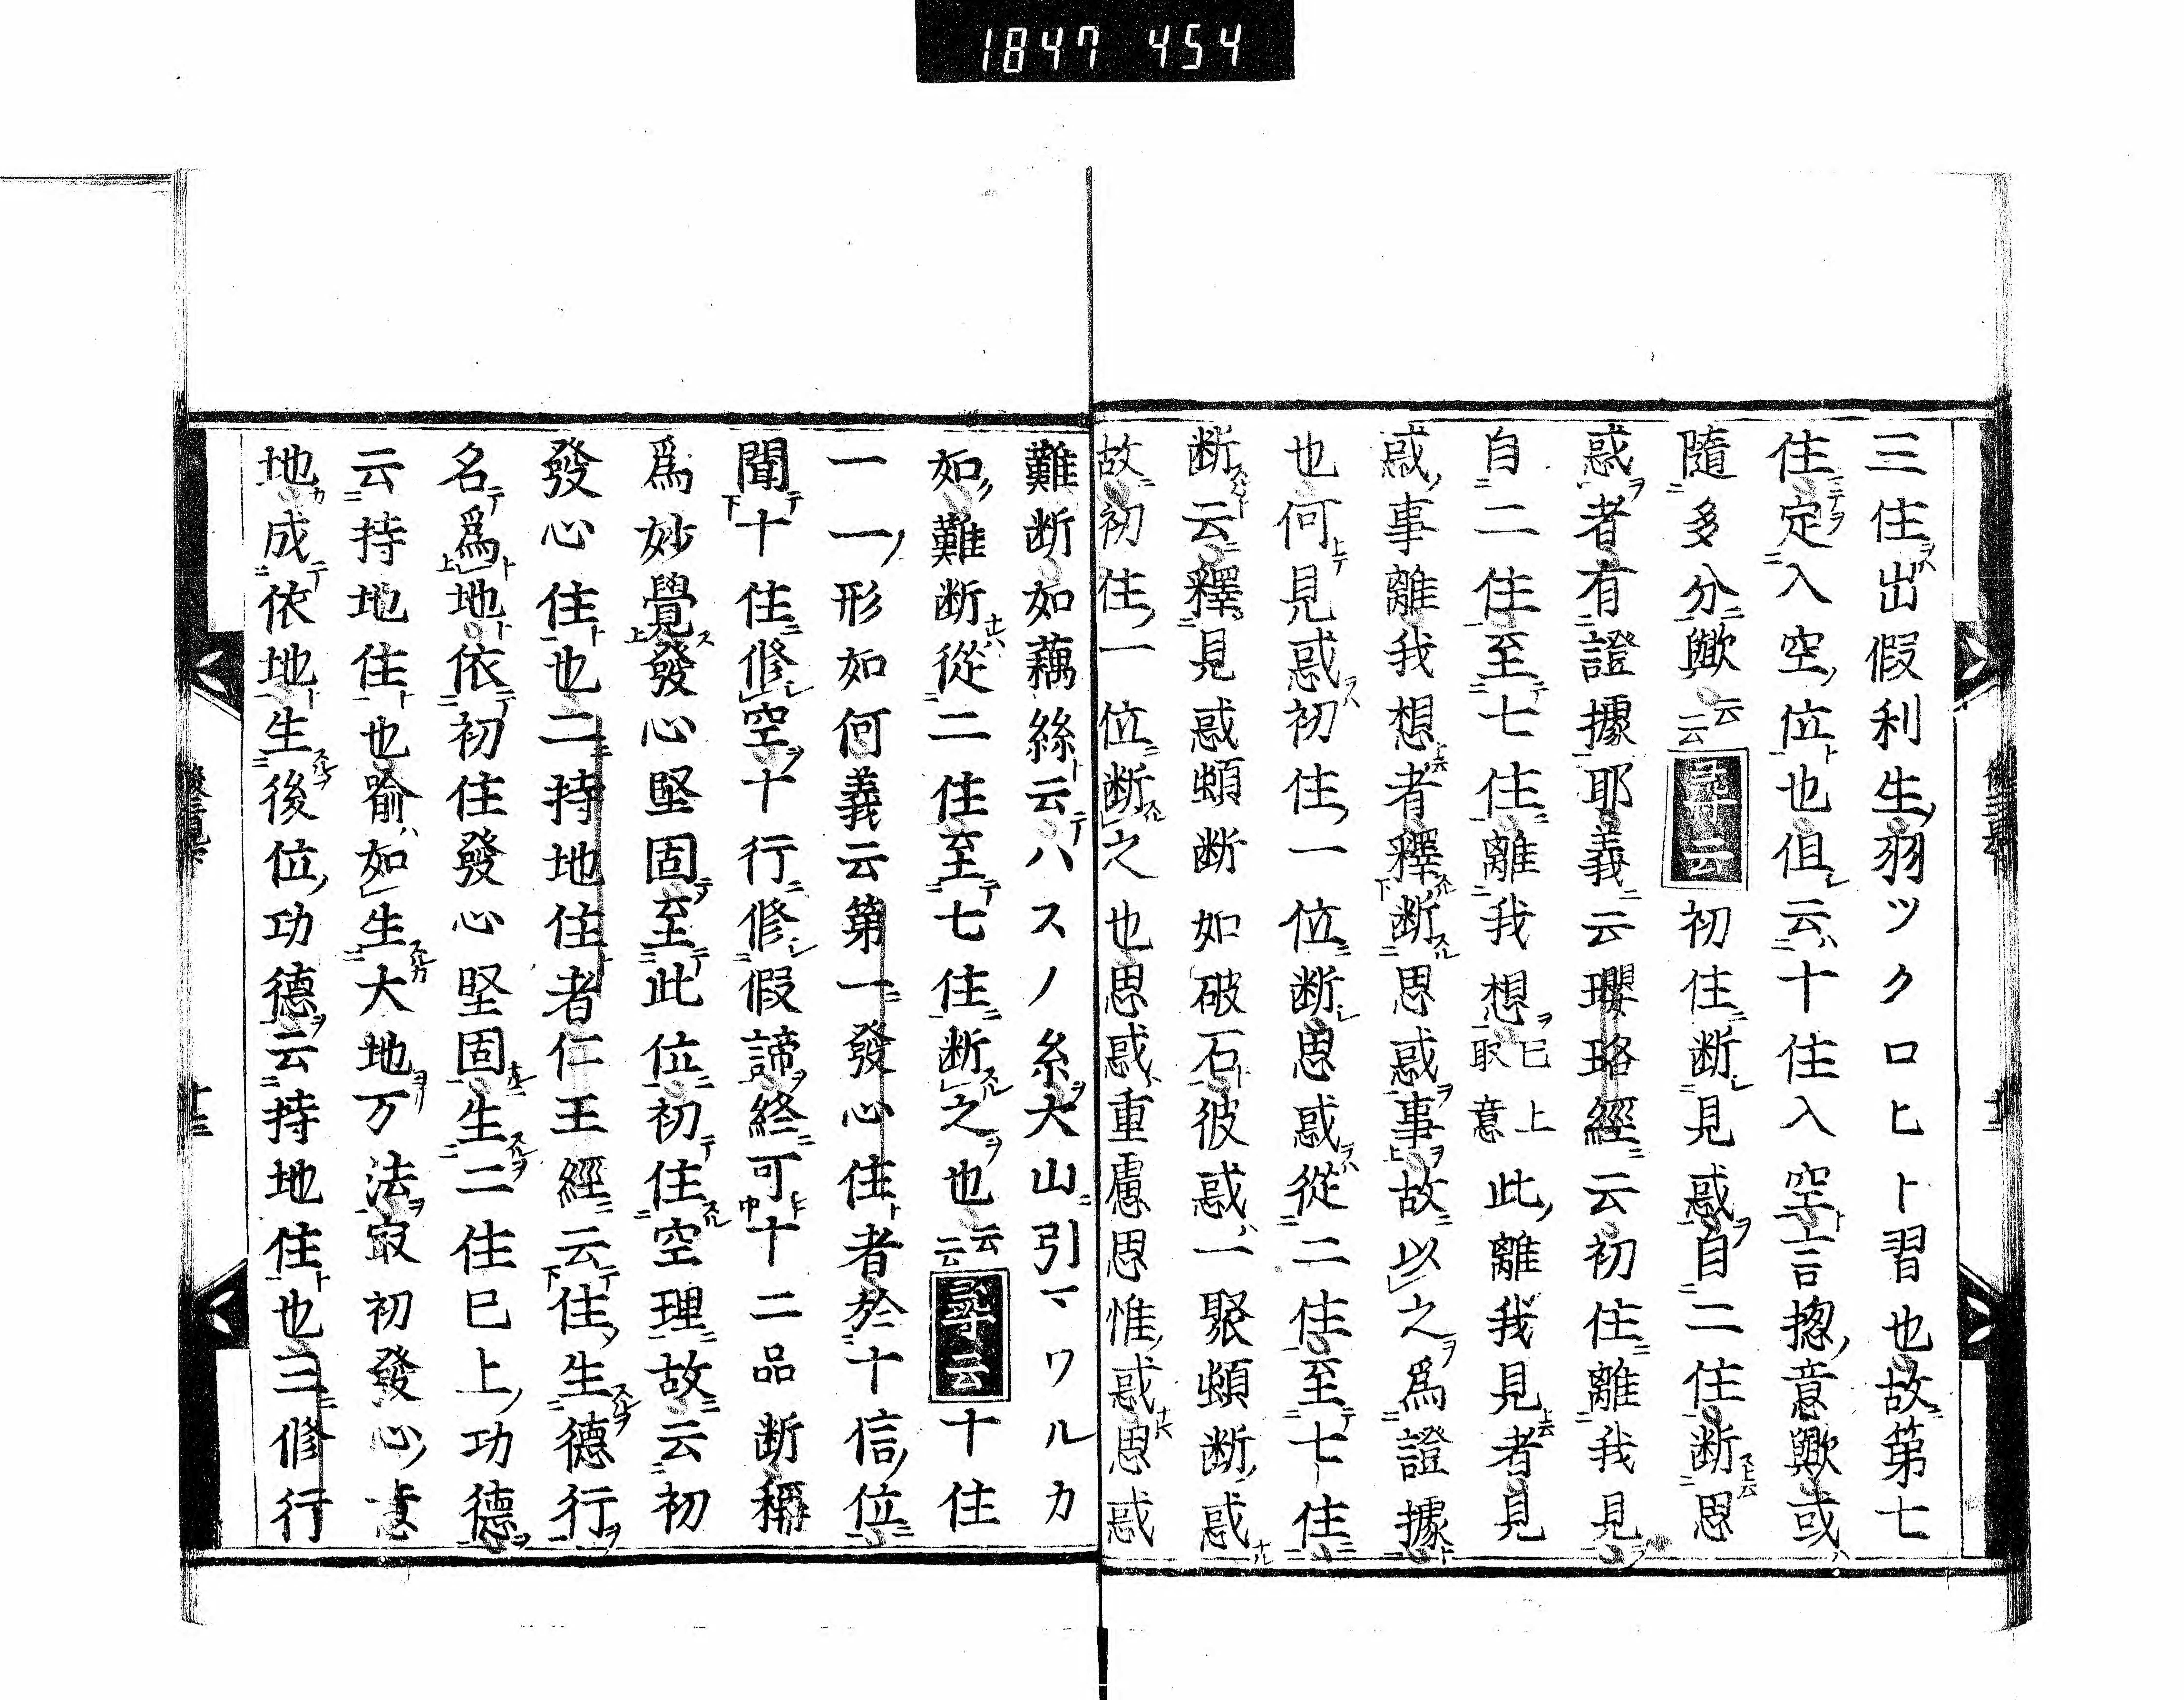 1847 454
三住出假利生羽ツクロヒト習也故第七
住定入空位也但云十住入空言摠意歟或
隨多分歟云云尋云初住断見惑自二住断思
惑者有證據耶義云瓔珞經云初住離我見
自二住至七住離我想已上取意此離我見者見
惑事離我想者釋断思惑事故以之爲證據
也何見惑初住一位断思惑從二住至七住
断云釋見惑頓断如破石彼惑一聚頓断惑
故初住一位断之也思惑重慮思惟惑思惑
難断如藕絲云ハスノ糸大山引マワルカ
如難断從二住至七住断之也云云尋云十住
一一形如何義云第一發心住者於十信位
聞十住修空十行修假諦終可十二品断稱
爲妙覺發心堅固至此位初住空理故云初
發心住也二持地住者仁王經云住生德行
名爲地依初住發心堅固生二住已上功德
云持地住也喩如生大地万法㝡初發心
地成依地生後位功德云持地住也三修行